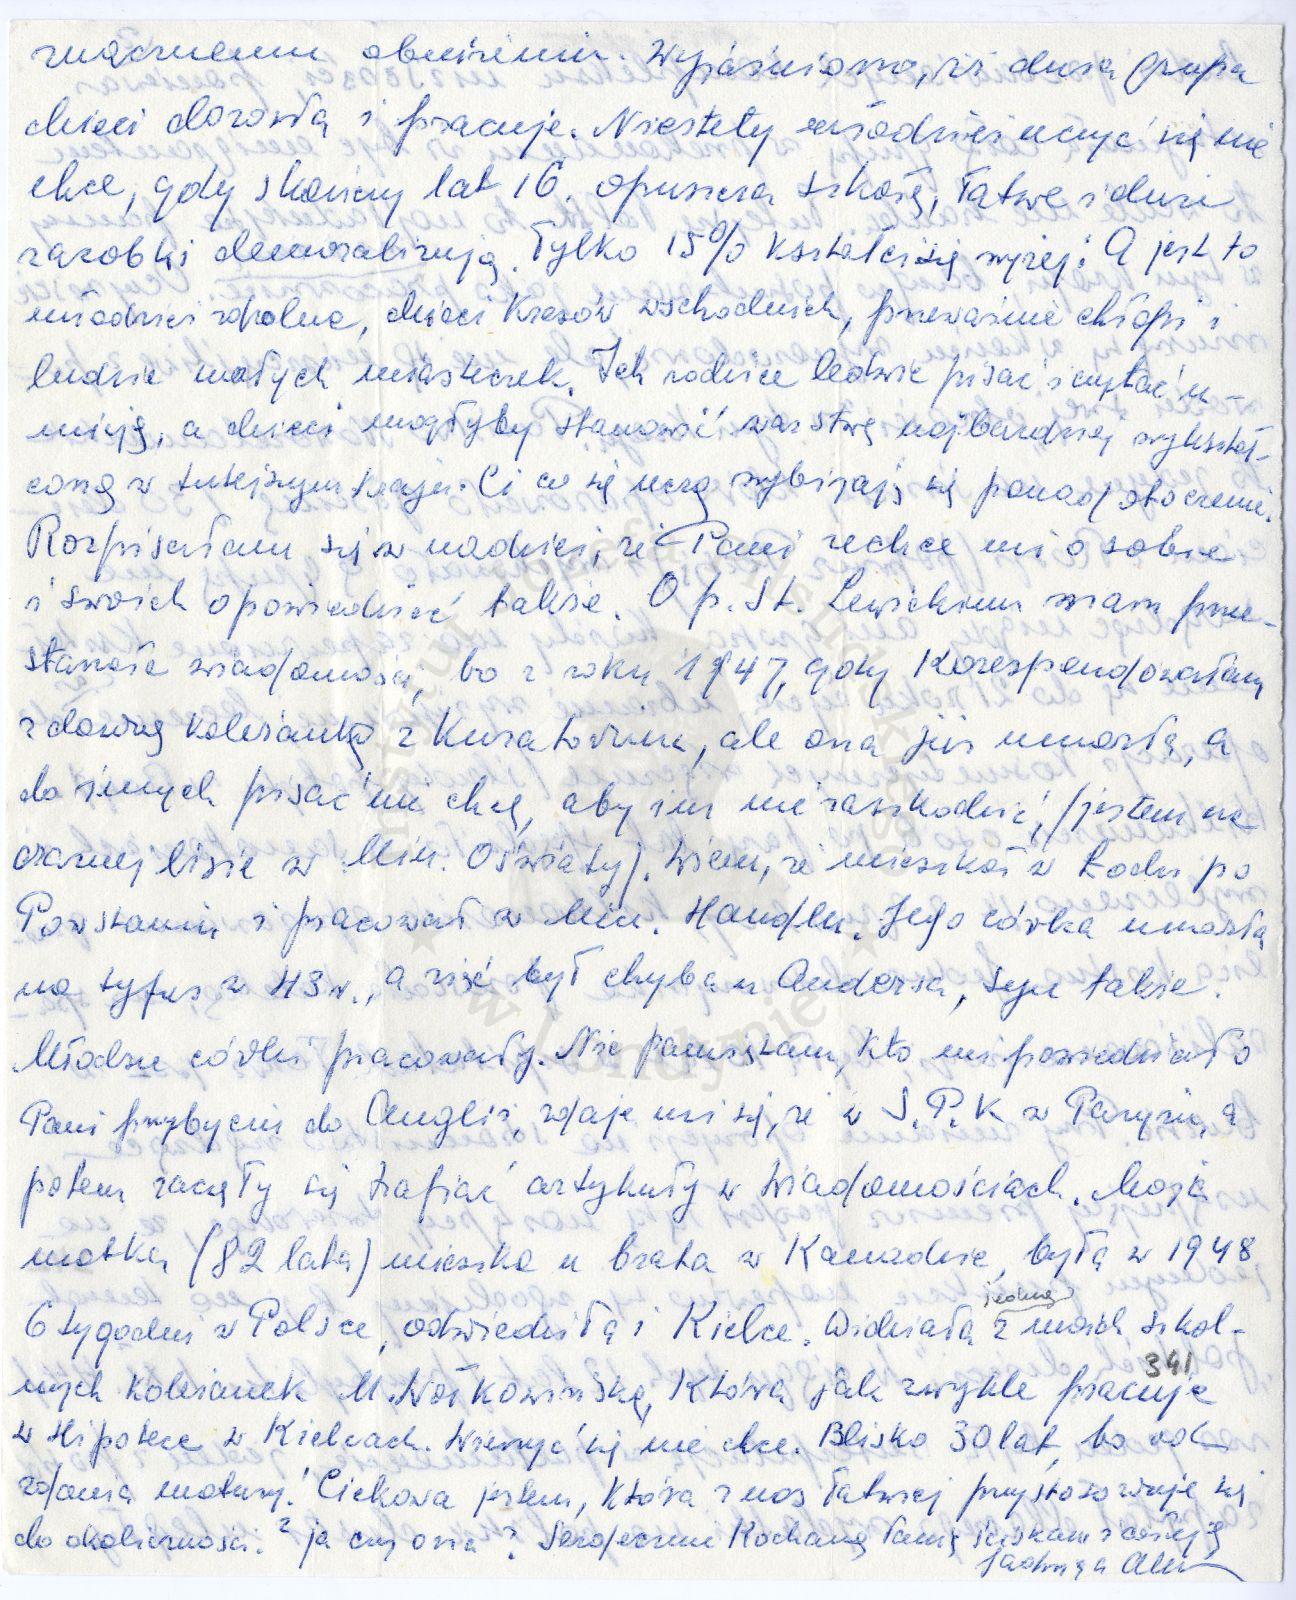 znacznemu obniżeniu. Wyjaśniono, iż duża grupa
dzieci dorosłą i pracuje. Niestety młodzież uczyć się nie
chce, gdy skończy lat 16. opuszcza szkołę, łatwe i duże
zarobki demoralizują. Tylko 15% kształci się wyżej! A jest to
młodzież zdolna, dzieci Kresów wschodnich, przeważnie chłopi i
ludzie małych miasteczek. Ich rodzice ledwie pisać i czytać u-
mieją, a dzieci mogłyby stanowić warstwę najbardziej wykształ-
coną w tutejszym kraju. Ci co się uczą wybijają się ponad otoczenie.
Rozpisałam się w nadziei, że Pani zechce mi o sobie
i swoich opowiedzieć także. O p. St. Lewickim mam prze-
starzałe wiadomości, bo z roku 1947, gdy korespondowałam
z dawną koleżanką z Kuratorium, ale ona już umarła, a
do innych pisać nie chcę, aby im nie zaszkodzić, /jestem na
czarnej liście w Min. Oświaty/. Wiem, że mieszkał w Łodzi po
Powstaniu i pracował w Min. Handlu. Jego córka umarła
na tyfus w 43 r., a zięć był chyba u Andersa, syn także.
Młodsze córki pracowały. Nie pamiętam, kto mi powiedział o
Pani przybyciu do Anglii, zdaje mi się, że w S.P.K w Paryżu, a
potem zaczęły się trafiać artykuły w Wiadomościach. Moja
matka (82 lata) mieszka u brata w Kanadzie, była w 1948
6 tygodni w Polsce, odwiedziła i Kielce. Widziała jedną z moich szkol-
341
nych koleżanek M. Wołkowińską, która jak zwykle pracuje
w Hipotece w Kielcach. Wierzyć się nie chce. Blisko 30 lat, bo od
zdania matury! Ciekawa jestem, która z nas łatwiej przystosowuje się
do okoliczności? ja czy ona? Serdecznie Kochaną Panią ściskam i całuję
Jadwiga
Instytut Józefa Piłsudskiego
w Londynie